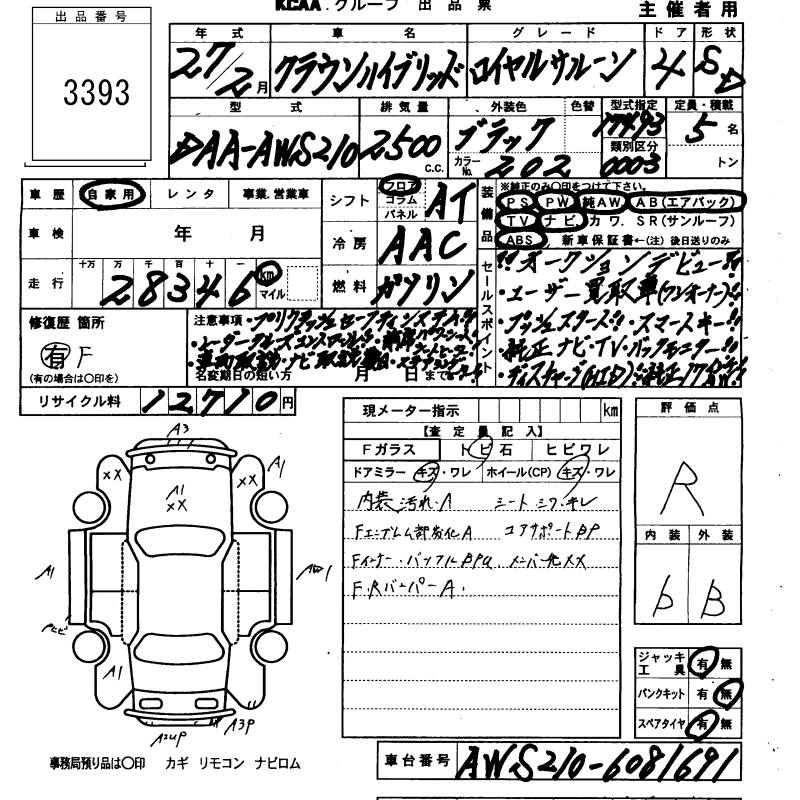 KCAA.グループ 出品票
主催者用
出品番号
3393
年式 車名 グレード ドア 形状
27/2月 クラウンハイブリッド ロイヤルサルーン 4 SD
型式 排気量 外装色 色替 型式指定 定員・積載
DAA-AWS210 2500 c.c. ブラック 17493 5名
カラーNo. 202 類別区分 0003 トン
車歴 自家用 レンタ 事業.営業車
シフト フロア コラム パネル AT
装備品 ※純正のみ○印をつけて下さい。
PS PW 純AW AB(エアバック)
TV ナビ カワ. SR(サンルーフ)
ABS 新車保証書←(注) 後日送りのみ
車検 年 月
冷房 AAC
走行 十万 万 千 百 十 一
28346 km マイル
燃料 ガソリン
セールスポイント
!!オークションデビュー!!
・ユーザー買取車(ワンオーナー)!!
・プッシュスタート!!・スマートキー!!
・純正ナビ・TV・バックモニター!!
・ディスチャージ(HID)
修復歴 箇所
有 F
(有の場合は○印を)
注意事項・プリクラッシュセーフティシステム!!
・レーダークルーズコントロール!!
・車両取説・ナビ取説
名変期日の短い方 月 日まで
リサイクル料 12710円
現メーター指示 km
【査定員記入】
Fガラス トビ石 ヒビワレ
ドアミラー キズ・ワレ ホイール(CP) キズ・ワレ
内装 汚れ・A シート シワ・キレ
Fエンブレム部劣化A コアサポートBP
Fインナー・バッフルBPa. メンバー先XX
F.RバンパーA.
評価点
R
内装 外装
b B
ジャッキ工具 有 無
パンクキット 有 無
スペアタイヤ 有 無
A3
XX
A1
A1
XX
A1
AW1
A1
A2UP
A3P
事務局預り品は○印 カギ リモコン ナビロム
車台番号 AWS210-6081691